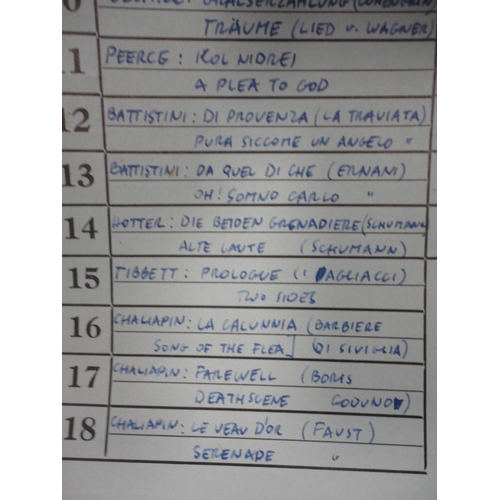 TRÄUME (LIED v. WAGNER)
11 PEERCE: KOL NIDREI
A PLEA TO GOD
12 BATTISTINI: DI PROVENZA (LA TRAVIATA)
PURA SICCOME UN ANGELO "
13 BATTISTINI: DA QUEL DI CHE (ERNANI)
OH! SOMNO CARLO "
14 HOTTER: DIE BEIDEN GRENADIERE (SCHUMANN
ALTE LAUTE (SCHUMANN)
15 TIBBETT: PROLOGUE (I PAGLIACCI)
TWO SIDES
16 CHALIAPIN: LA CALUNNIA (BARBIERE
SONG OF THE FLEA] DI SIVIGLIA)
17 CHALIAPIN: FAREWELL (BORIS
DEATHSCENE GODUNOV)
18 CHALIAPIN: LE VEAU D'OR (FAUST)
SERENADE "